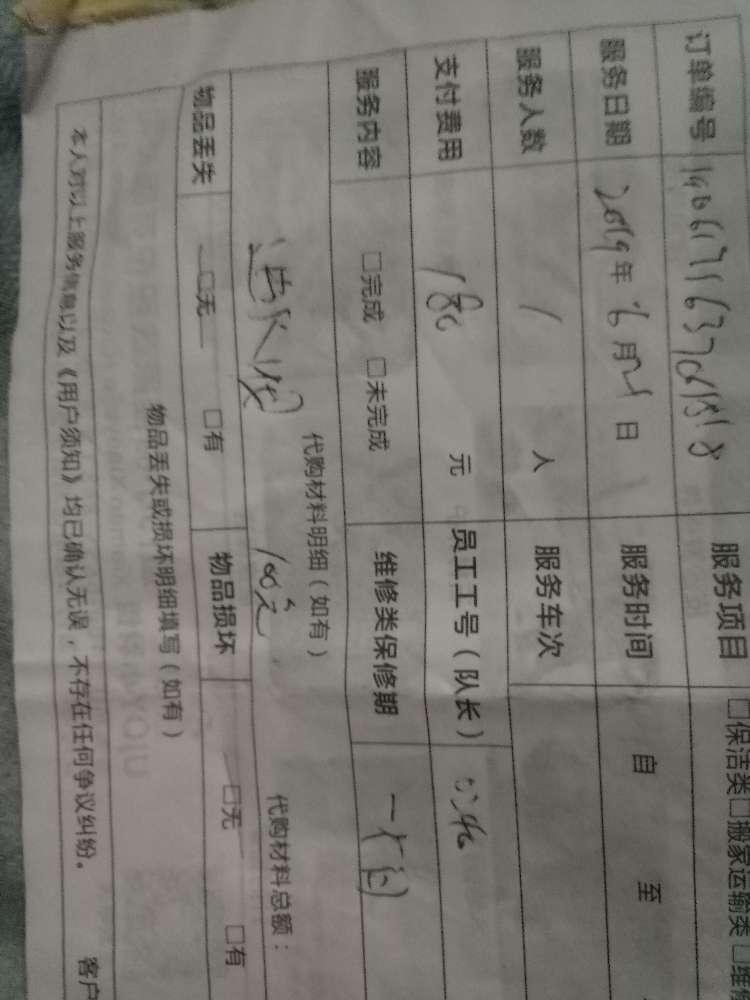 订单编号 服务项目 □保洁类□搬家运输类□维
服务日期 2019年6月21日 服务时间 自 至
服务人数 1 人 服务车次
支付费用 180 元 员工工号(队长) 0346
服务内容 □完成 □未完成 维修类保修期 一个月
代购材料明细(如有) 代购材料总额:
进水阀 100元
物品丢失 □无 □有 物品损坏 □无 □有
物品丢失或损坏明细填写(如有)
本人对以上服务信息以及《用户须知》均已确认无误,不存在任何争议纠纷。 客户